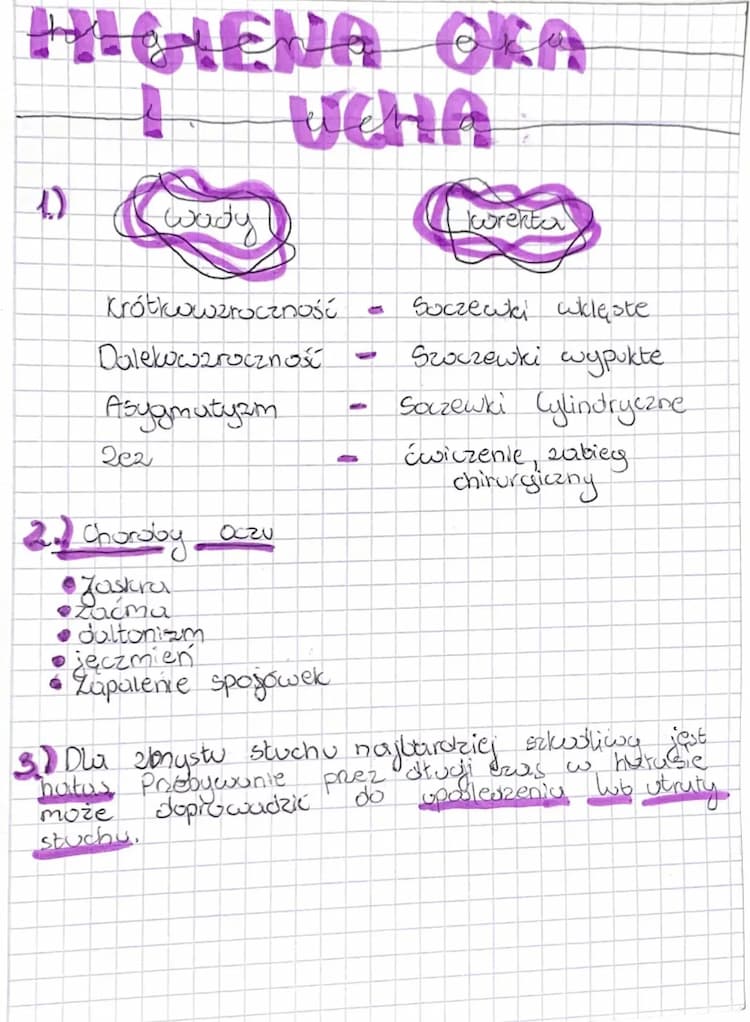 HIGIENA OKA
I UCHA
1.) wady korekta
Krótkowzroczność - Soczewki wklęsłe
Dalekowzroczność - Szoczewki wypukłe
Asygmatyzm - Soczewki Cylindryczne
Zez - ćwiczenie, zabieg
chirurgiczny
2.) Choroby oczu
• Jaskra
• zaćma
• daltonizm
• jęczmień
• Zapalenie spojówek
3.) Dla zmysłu słuchu najbardziej szkodliwy jest
hałas. Przebywanie przez długi czas w hałasie
może doprowadzić do upośledzenia lub utraty
słuchu.